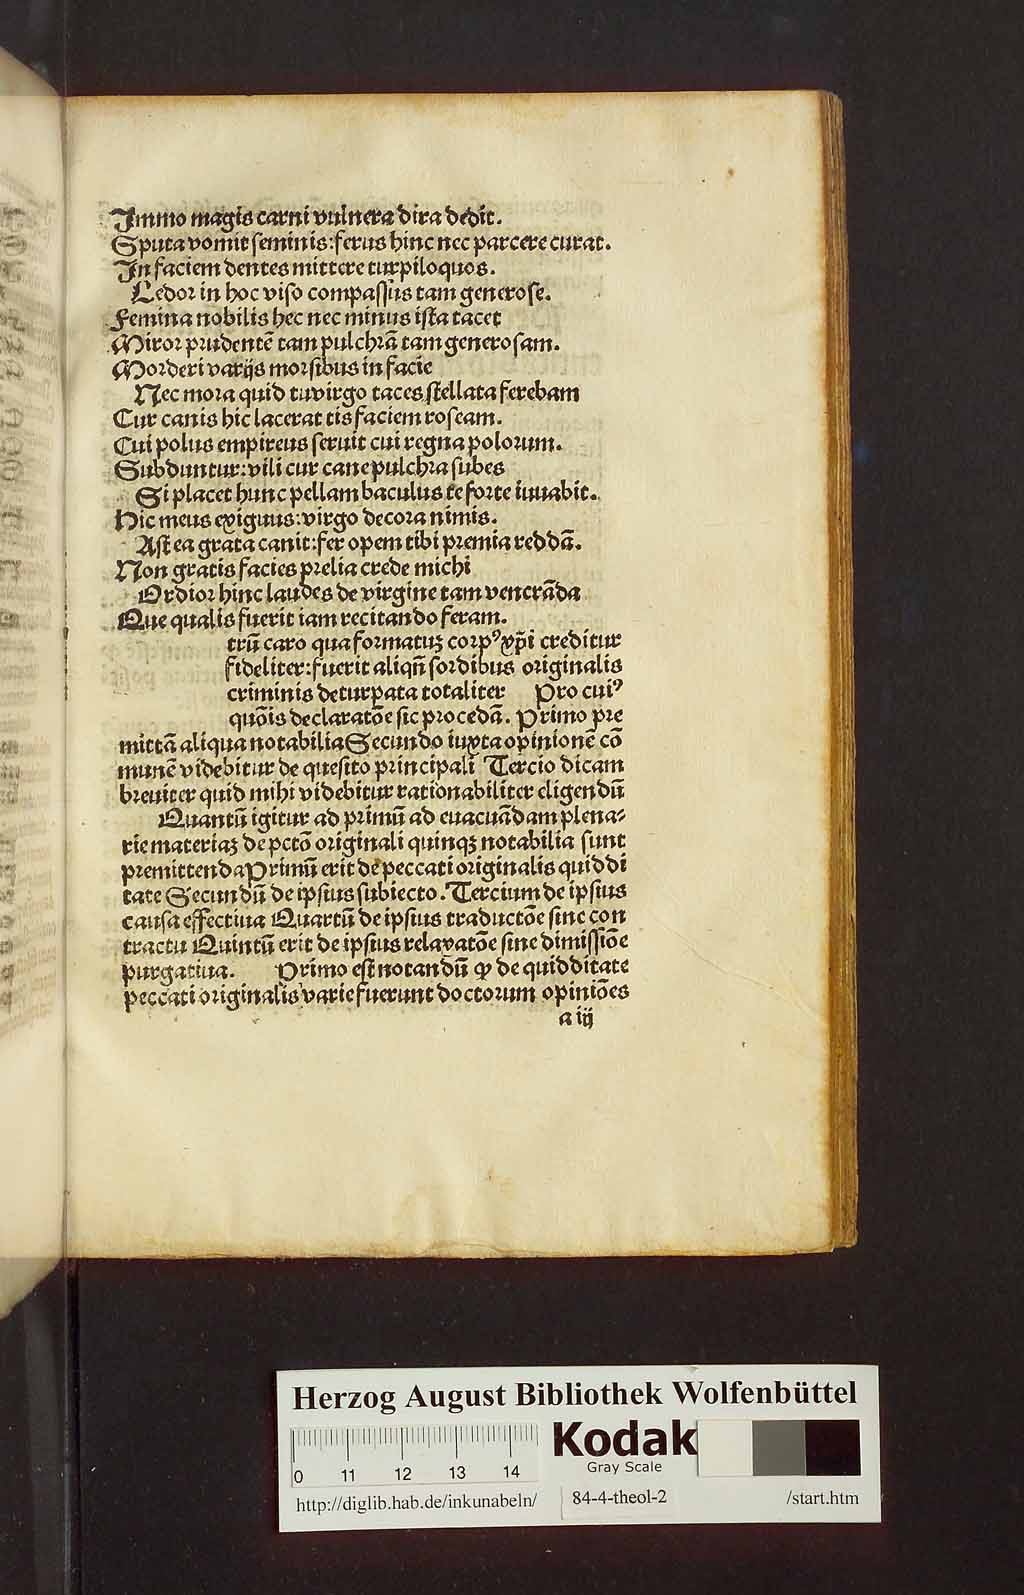 Immo magis carni vulnera dira dedit.
Sputa vomit seminis: ferus hinc nec parcere curat.
In faciem dentes mittere turpiloquos.
Ledor in hoc viso compassus tam generose.
Femina nobilis hec nec minus ista tacet
Miror prudentē tam pulchrā tam generosam.
Morderi varijs morsibus in facie
Nec mora quid tu virgo taces stellata ferebam
Cur canis hic lacerat tis faciem roseam.
Cui polus empireus seruit cui regna polorum.
Subduntur: vili cur cane pulchra subes
Si placet hunc pellam baculus te forte iuuabit.
Hic meus exiguus: virgo decora nimis.
Ast ea grata canit: fer opem tibi premia reddā.
Non gratis facies prelia crede michi
Ordior hinc laudes de virgine tam venerāda
Que qualis fuerit iam recitando feram.
trū caro qua formatuꝫ corpꝰ xp̄i creditur
fideliter: fuerit aliqn̄ sordibus originalis
criminis deturpata totaliter Pro cuiꝰ
quōis declaratōe sic procedā. Primo pre
mittā aliqua notabilia Secundo iuxta opinionē cō
munē videbitur de quesito principali Tercio dicam
breuiter quid mihi videbitur rationabiliter eligendū
Quantū igitur ad primū ad euacuādam plena⸗
rie materiaꝫ de pctō originali quinqꝫ notabilia sunt
premittenda Primū erit de peccati originalis quiddi
tate Secundū de ipsius subiecto. Tercium de ipsius
causa effectiua Quartū de ipsius traductōe siue con
tractu Quintū erit de ipsius relaxatōe siue dimissiōe
purgatiua. Primo est notandū ꝙ de quidditate
peccati originalis varie fuerunt doctorum opiniōes
a iij
Herzog August Bibliothek Wolfenbüttel
0 11 12 13 14
Kodak
Gray Scale
http://diglib.hab.de/inkunabeln/ 84-4-theol-2 /start.htm